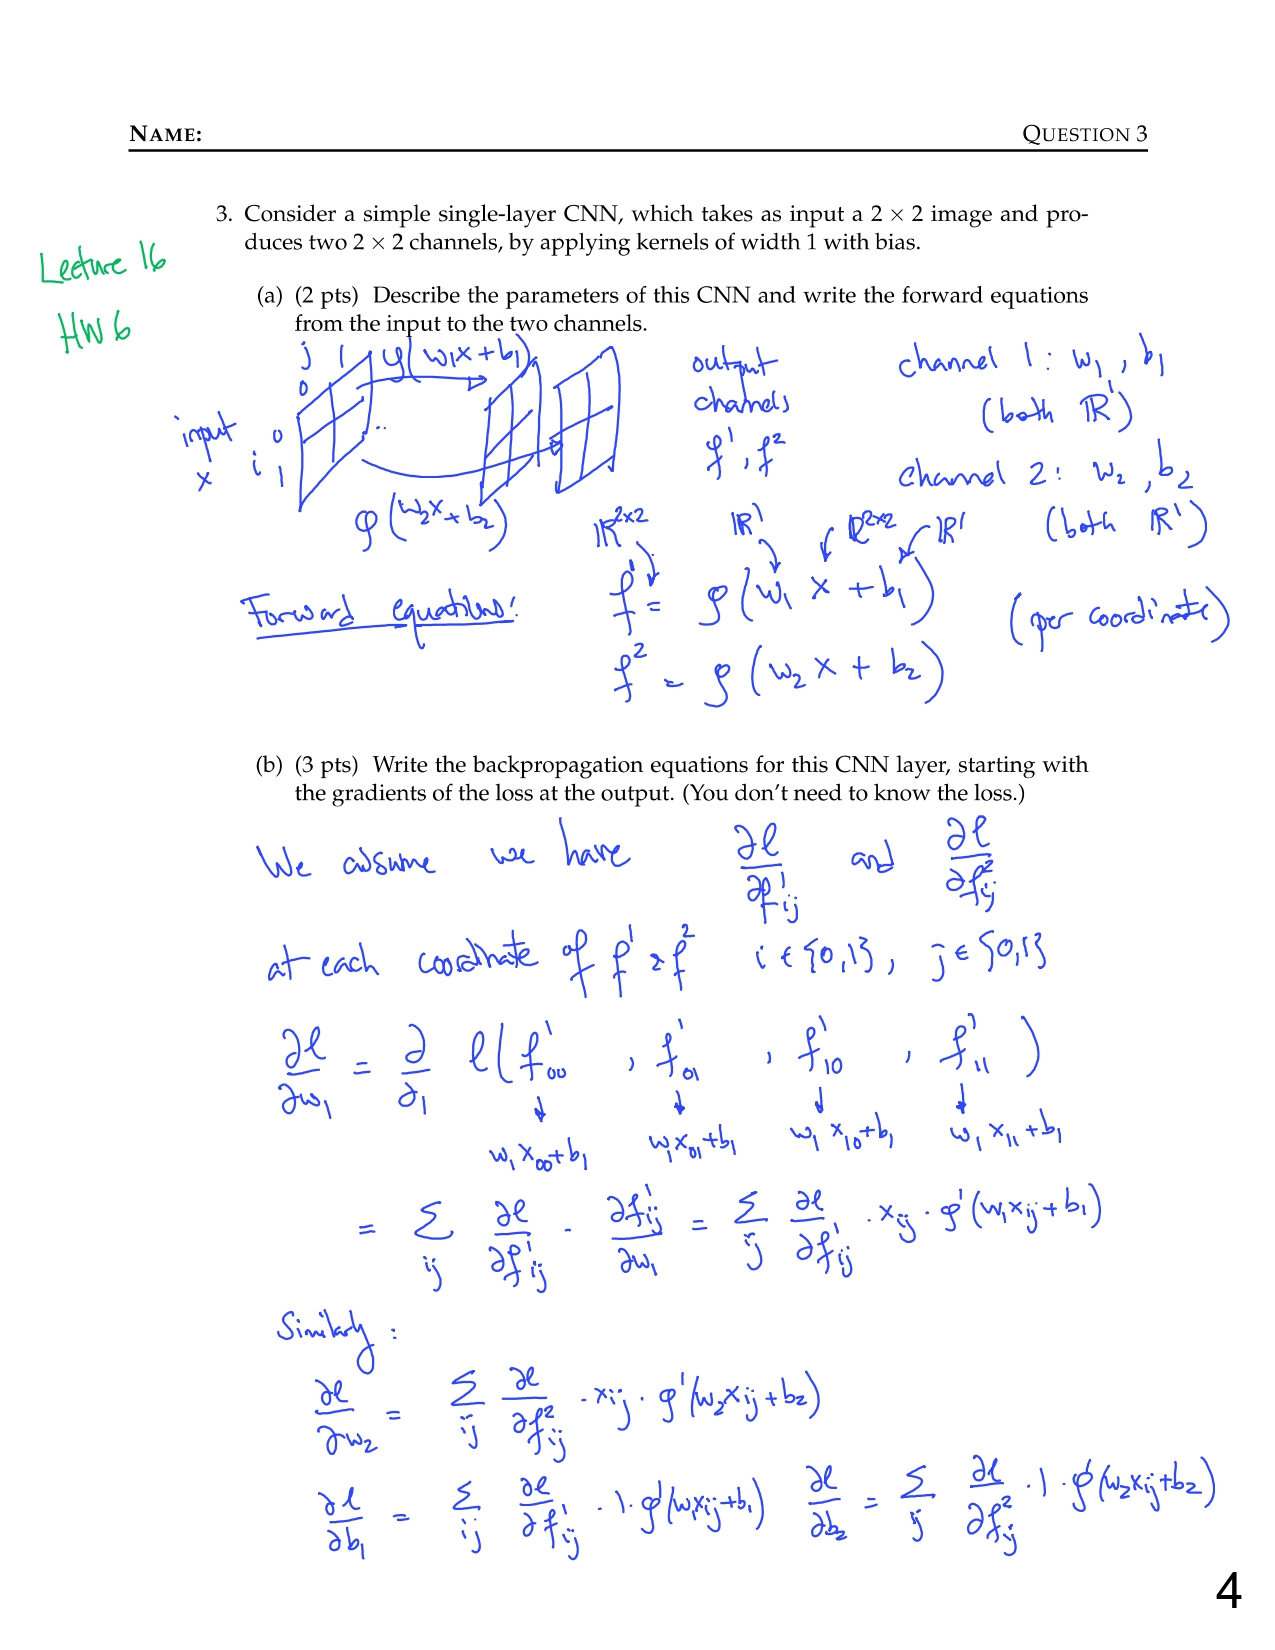 NAME: QUESTION 3
3. Consider a simple single-layer CNN, which takes as input a 2 × 2 image and pro-
duces two 2 × 2 channels, by applying kernels of width 1 with bias.
Lecture 16
HW 6
(a) (2 pts) Describe the parameters of this CNN and write the forward equations
from the input to the two channels.
j 0 1 φ(w₁x+b₁)
input x i 0 1
φ(w₂x+b₂)
output
channels
f¹, f²
channel 1: w₁, b₁
(both ℝ¹)
channel 2: w₂, b₂
(both ℝ¹)
ℝ²ˣ² ℝ¹ ℝ²ˣ² ℝ¹
Forward equations: f¹ = φ(w₁ x + b₁) (per coordinate)
f² = φ(w₂ x + b₂)
(b) (3 pts) Write the backpropagation equations for this CNN layer, starting with
the gradients of the loss at the output. (You don't need to know the loss.)
We assume we have ∂l/∂f¹ij and ∂l/∂f²ij
at each coordinate of f¹ & f² i ∈ {0,1}, j ∈ {0,1}
∂l/∂w₁ = ∂/∂₁ l(f¹₀₀, f¹₀₁, f¹₁₀, f¹₁₁)
↓ ↓ ↓ ↓
w₁x₀₀+b₁ w₁x₀₁+b₁ w₁x₁₀+b₁ w₁x₁₁+b₁
= Σij ∂l/∂f¹ij · ∂f¹ij/∂w₁ = Σij ∂l/∂f¹ij · xij · φ'(w₁xij+b₁)
Similarly:
∂l/∂w₂ = Σij ∂l/∂f²ij · xij · φ'(w₂xij+b₂)
∂l/∂b₁ = Σij ∂l/∂f¹ij · 1 · φ'(w₁xij+b₁) ∂l/∂b₂ = Σij ∂l/∂f²ij · 1 · φ'(w₂xij+b₂)
4